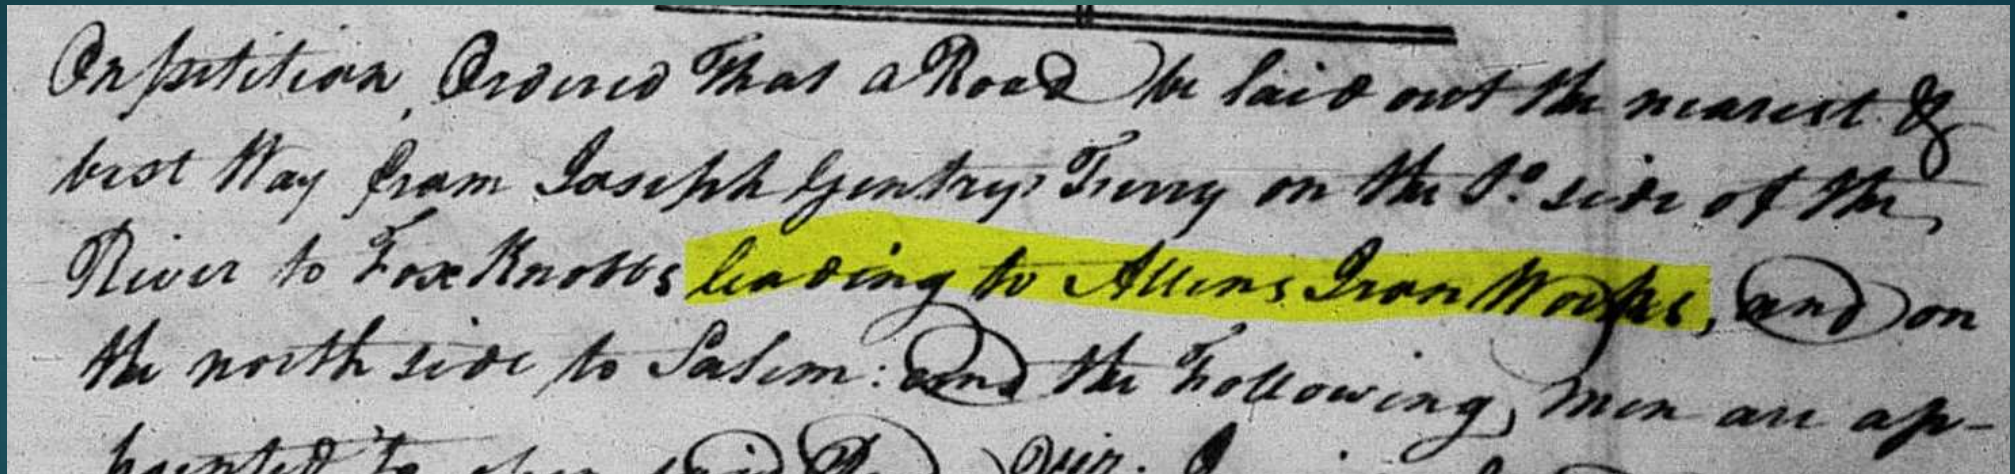 On petition, Ordered That a Road be laid out the nearest &
best Way from Joseph Gentrys Ferry on the So. side of the
River to Fox Knobbs leading to Allens Iron Works, and on
the north side to Salem: and the Following, men are ap-
pointed to said